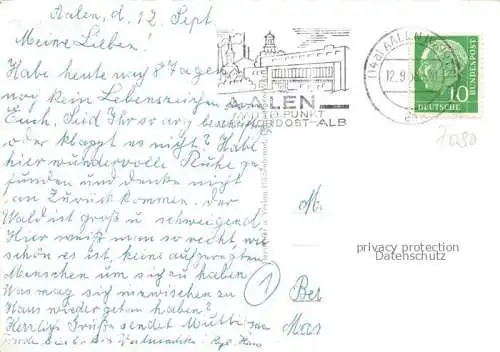 Aalen, d. 12. Sept
Meine Lieben!
Habe heute nach 8 Tagen
noch kein Lebenszeichen von
Euch. Seid Ihr so arg beschäftigt
oder klappt es nicht? Habe
hier wundervolle Ruhe ge-
funden und denke nicht
an Zurückkommen. Der
Wald ist groß u schweigend
Hier weiß man so recht, wie
schön es ist, keine aufgeregten
Menschen um sich zu haben.
Was mag sich inzwischen zu
Haus wieder getan haben?
Herzlige Grüße sendet Mutti
AALEN
MITTELPUNKT
NORDOST-ALB
(14a) AALEN
12.9.
DEUTSCHE
BUNDESPOST
10
7080
M
privacy protection
Datenschutz
1
Ber
Mas